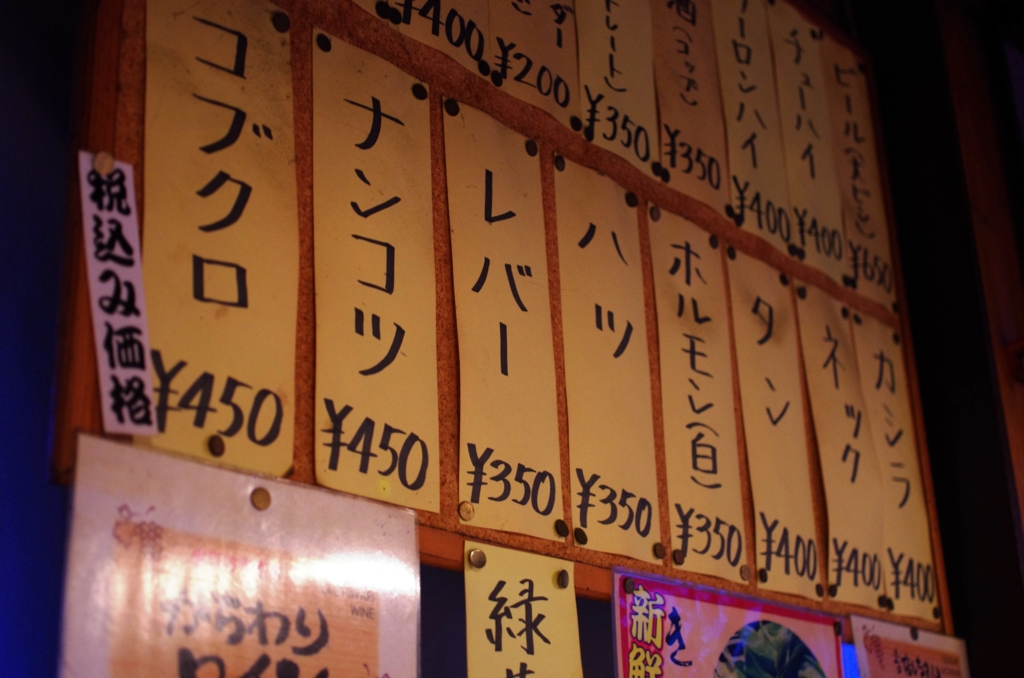 ビール(大ビン)
¥650
チューハイ
¥400
ーロンハイ
¥400
酒(コップ)
¥350
トレート)
¥350
ダー
¥200
¥400
カシラ
¥400
ネック
¥400
タン
¥400
ホルモン(白)
¥350
ハツ
¥350
レバー
¥350
ナンコツ
¥450
コブクロ
¥450
税込み価格
WINE
がらわり
ワイン
緑
新鮮
き